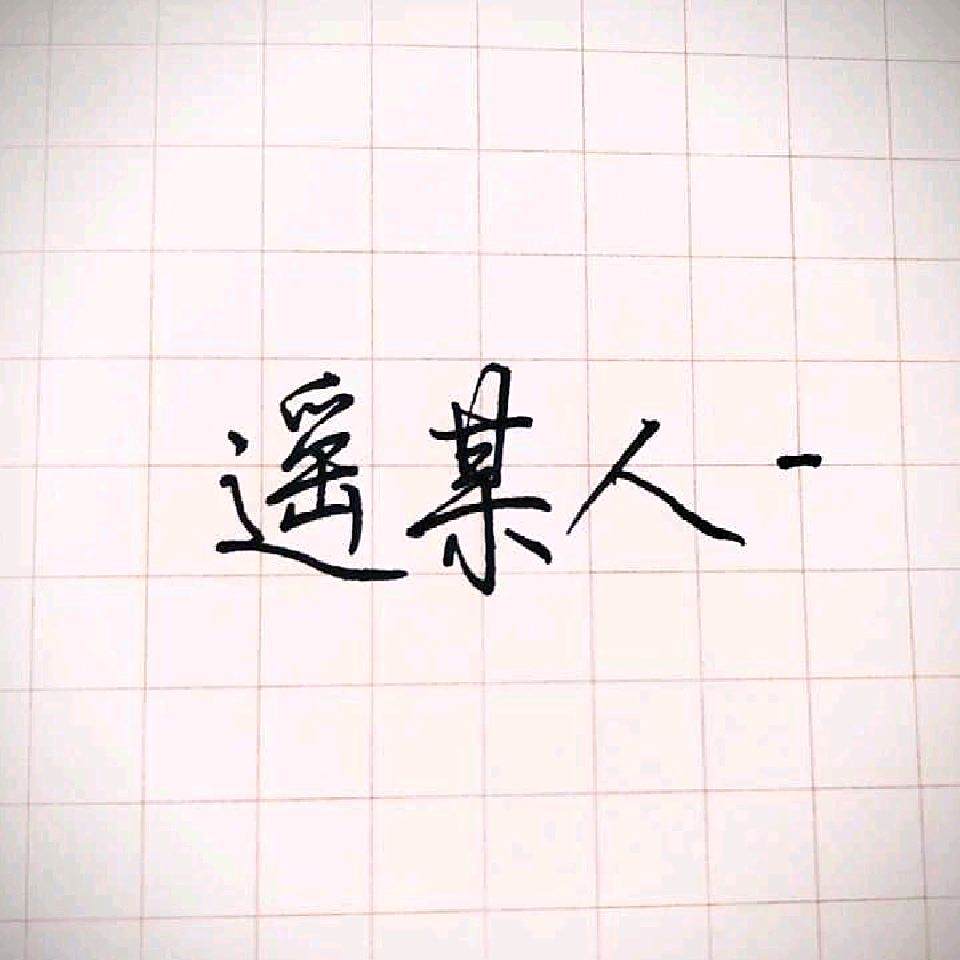 遥某人-